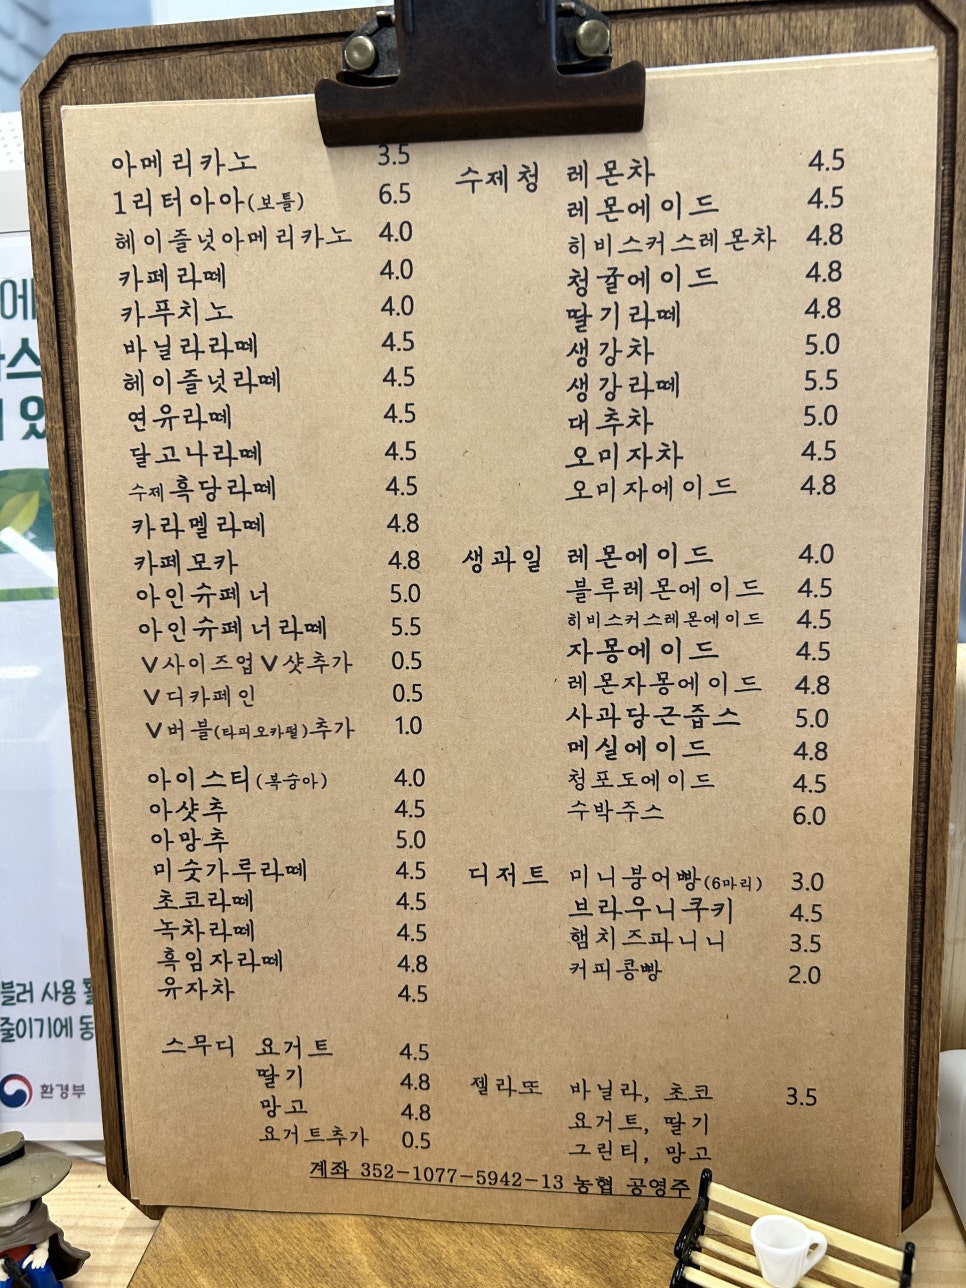 아메리카노 3.5
1리터아아(보틀) 6.5
헤이즐넛아메리카노 4.0
카페라떼 4.0
카푸치노 4.0
바닐라라떼 4.5
헤이즐넛라떼 4.5
연유라떼 4.5
달고나라떼 4.5
수제흑당라떼 4.5
카라멜라떼 4.8
카페모카 4.8
아인슈페너 5.0
아인슈페너라떼 5.5
V사이즈업 V샷추가 0.5
V디카페인 0.5
V버블(타피오카펄)추가 1.0
아이스티(복숭아) 4.0
아샷추 4.5
아망추 5.0
미숫가루라떼 4.5
초코라떼 4.5
녹차라떼 4.5
흑임자라떼 4.8
유자차 4.5
스무디 요거트 4.5
딸기 4.8
망고 4.8
요거트추가 0.5
수제청 레몬차 4.5
레몬에이드 4.5
히비스커스레몬차 4.8
청귤에이드 4.8
딸기라떼 4.8
생강차 5.0
생강라떼 5.5
대추차 5.0
오미자차 4.5
오미자에이드 4.8
생과일 레몬에이드 4.0
블루레몬에이드 4.5
히비스커스레몬에이드 4.5
자몽에이드 4.5
레몬자몽에이드 4.8
사과당근쥽스 5.0
메실에이드 4.8
청포도에이드 4.5
수박주스 6.0
디저트 미니붕어빵(6마리) 3.0
브라우니쿠키 4.5
햄치즈파니니 3.5
커피콩빵 2.0
젤라또 바닐라, 초코 3.5
요거트, 딸기
그린티, 망고
계좌 352-1077-5942-13 농협 공영주
에
스
있
블러 사용
줄이기에 동
환경부